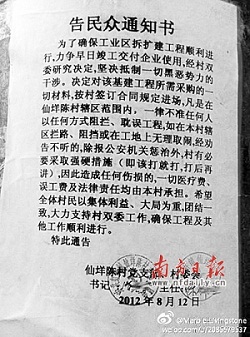 告民众通知书
为了确保工业区拆扩建工程顺利进
行,力争早日竣工交付企业使用,经村
双委研究决定,坚决抵制一切黑恶势力的
干涉。决定对该基建工程所需采购的一
切材料,按村签订合同规定进场,凡是在
仙垟陈村辖区范围内,一律不准任何人
以任何方式阻拦、耽误工程,如在本村辖
区拦路、阻挡或在工地上无理取闹,经劝
告不听的,除报公安机关惩治外,村有必
要采取强硬措施(即该打就打,打后再
讲),因此造成任何伤损的,一切医疗费、
误工费及法律责任均由本村承担。希望
全体村民以集体利益、大局为重,团结一
致,大力支持村双委工作,确保工程及其
他工作顺利进行。
特此通告
仙垟陈村党支部
书记 主任
2012年8月12日
南方日报
www.nfdaily.cn